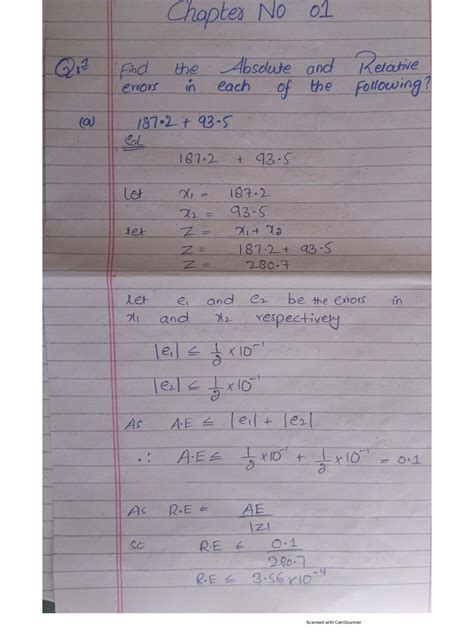 Chapter No 01
Q:1 Find the Absolute and Relative
errors in each of the following?
(a) 187.2 + 93.5
Sol
187.2 + 93.5
Let x₁ = 187.2
x₂ = 93.5
let Z = x₁ + x₂
Z = 187.2 + 93.5
Z = 280.7
let e₁ and e₂ be the errors in
x₁ and x₂ respectively
|e₁| ≤ 1/2 × 10⁻¹
|e₂| ≤ 1/2 × 10⁻¹
As A.E ≤ |e₁| + |e₂|
∴ A.E ≤ 1/2 × 10⁻¹ + 1/2 × 10⁻¹ = 0.1
As R.E = AE / |Z|
so R.E ≤ 0.1 / 280.7
R.E ≤ 3.56 × 10⁻⁴
Scanned with CamScanner